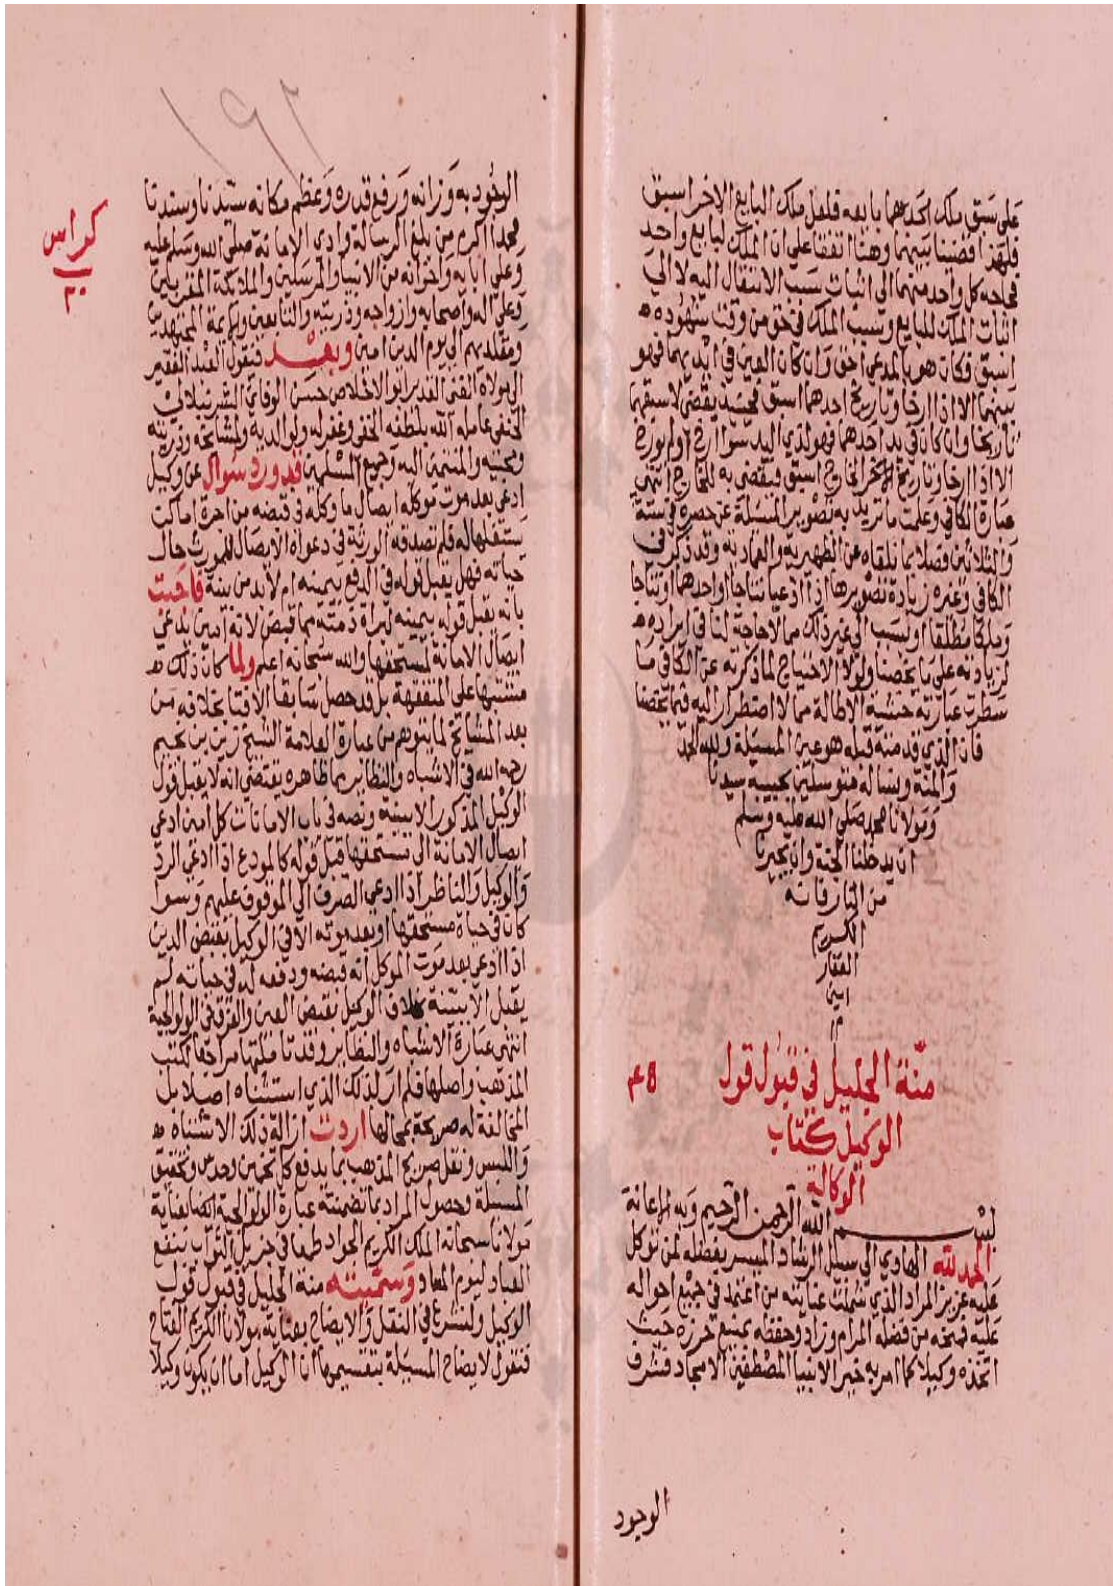 على سبق ملك احدهما بايعه فلعل ملك البايع الاخر اسبق
فلهذا قضينا بينهما وهنا اتفقا على ان الملك لبايع واحد
فحاجة كل واحد منهما الى اثبات سبب الانتقال اليه لا الى
اثبات الملك للبايع وسبب الملك في حق من وقت شهوده
اسبق فكان هو بالمدعي احق وان كان العين في ايديهما فهو
بينهما الا اذا ارخا وتاريخ احدهما اسبق فحينئذ يقضى لاسبقهما
تاريخا وان كان في يد احدهما فهو لذي اليد سوا ارخ او لم يورخ
الا اذا ارخا وتاريخ الخارج اسبق فيقضى به للخارج انتهى
عبارة الكافي وعلمت ما تريد به تصوير المسيلة عن حصره في ستة
والثلاثين فصلا بما نلقاه عن الظهيرية والعمادية وقد ذكر في
الكافي وغيره زيادة تصويرها اذا ادعيا نتاجا او احدهما او نتاجا
وملكا مطلقا او لسبب الى غير ذلك مما لا حاجة لنا في ايراده
لزيادته على ما يخصنا ولولا الاحتياج لما ذكرته عن الكافي ما
سطرت عبارته خشية الاطالة مما لا اضطرار اليه فيما يخصنا
فان الذي قدمته قبله هو عين المسيلة ولله الحمد
والمنة ونساله متوسلين بحبيبه سيدنا
ومولانا محمد صلى الله عليه وسلم
ان يدخلنا الجنة وان يجيرنا
من النار فانه
الكريم
الغفار
امين
م
منة الجليل في قبول قول ٤٥
الوكيل كتاب
الوكالة
بسم الله الرحمن الرحيم وبه الاعانة
الحمد لله الهادي الى سبيل الرشاد الميسر بفضله لمن توكل
عليه عزيز المراد الذي شملت عنايته من اعتمد في جميع احواله
عليه فمنحه من فضله المرام وزاد وحفظه بمنيع حرزه حيث
اتخذه وكيلا كما امر به خير الانبيا المصطفين الامجاد فشرف
الوجود
١٩٢
كراس
٢٠
الوجود به وزانه ورفع قدره وعظم مكانه سيدنا وسندنا
محمدا اكرم من بلغ الرسالة وادى الامانة صلى الله وسلم عليه
وعلى ابايه واخوانه من الانبيا والمرسلين والمليكة المقربين
وعلى اله واصحابه وازواجه وذريته والتابعين وايمة المجتهدين
ومقلديهم الى يوم الدين امين وبعد فيقول العبد الفقير
الى مولاه الغني القدير ابو الاخلاص حسن الوفاي الشرنبلالي
الحنفي عامله الله بلطفه الخفي وغفر له ولوالديه ولمشايخه وذريته
ومحبيه والمنتمين اليه وجميع المسلمين قد ورد سوال عن وكيل
ادعى بعد موت موكله ايصال ما وكله في قبضه من اجرة اماكن
يستغلها له فلم تصدقه الورثة في دعواه الايصال للمورث حال
حياته فهل يقبل قوله في الدفع بيمينه ام لا بد من بينة فاجبت
بانه يقبل قوله بيمينه لبراة ذمته مما قبض لانه امين يدعي
ايصال الامانة لمستحقها والله سبحانه اعلم ولما كان ذلك
مشتبها على المتفقهة بل قد حصل سابقا الافتا بخلافه من
بعد المشايخ لما يتوهم من عبارة العلامة الشيخ زين بن نجيم
رحمه الله في الاشباه والنظاير بما ظاهره يقتضي انه لا يقبل قول
الوكيل المذكور الا ببينة ونصه في باب الامانات كل امين ادعى
ايصال الامانة الى مستحقها قبل قوله كالمودع اذا ادعى الرد
والوكيل والناظر اذا ادعى الصرف الى الموقوف عليهم وسوا
كان في حياة مستحقها او بعد موته الا في الوكيل بقبض الدين
اذا ادعى بعد موت الموكل انه قبضه ودفعه له في حياته لم
يقبل الا ببينة بخلاف الوكيل بقبض العين والفرق في الولوالجية
انتهى عبارة الاشباه والنظاير وقد تاملتها مراجعا لكتب
المذهب واصلها فلم ار لذلك الذي استثناه اصلا بل
المخالفة له صريحة بمحالها اردت ازالة ذلك الاشتباه
واللبس ونقل صريح المذهب بما يدفع كل تخمين وحدس وتحقيق
المسيلة وحصول المراد بما تضمنته عبارة الولوالجية ايضا بعناية
مولانا سبحانه الملك الكريم الجواد طمعا في جزيل الثواب بنفع
العباد ليوم المعاد وسميته منة الجليل في قبول قول
الوكيل ولنشرع في النقل والايضاح بعناية مولانا الكريم الفتاح
فنقول لايضاح المسيلة بتقسيمها ان الوكيل اما ان يكون وكيلا